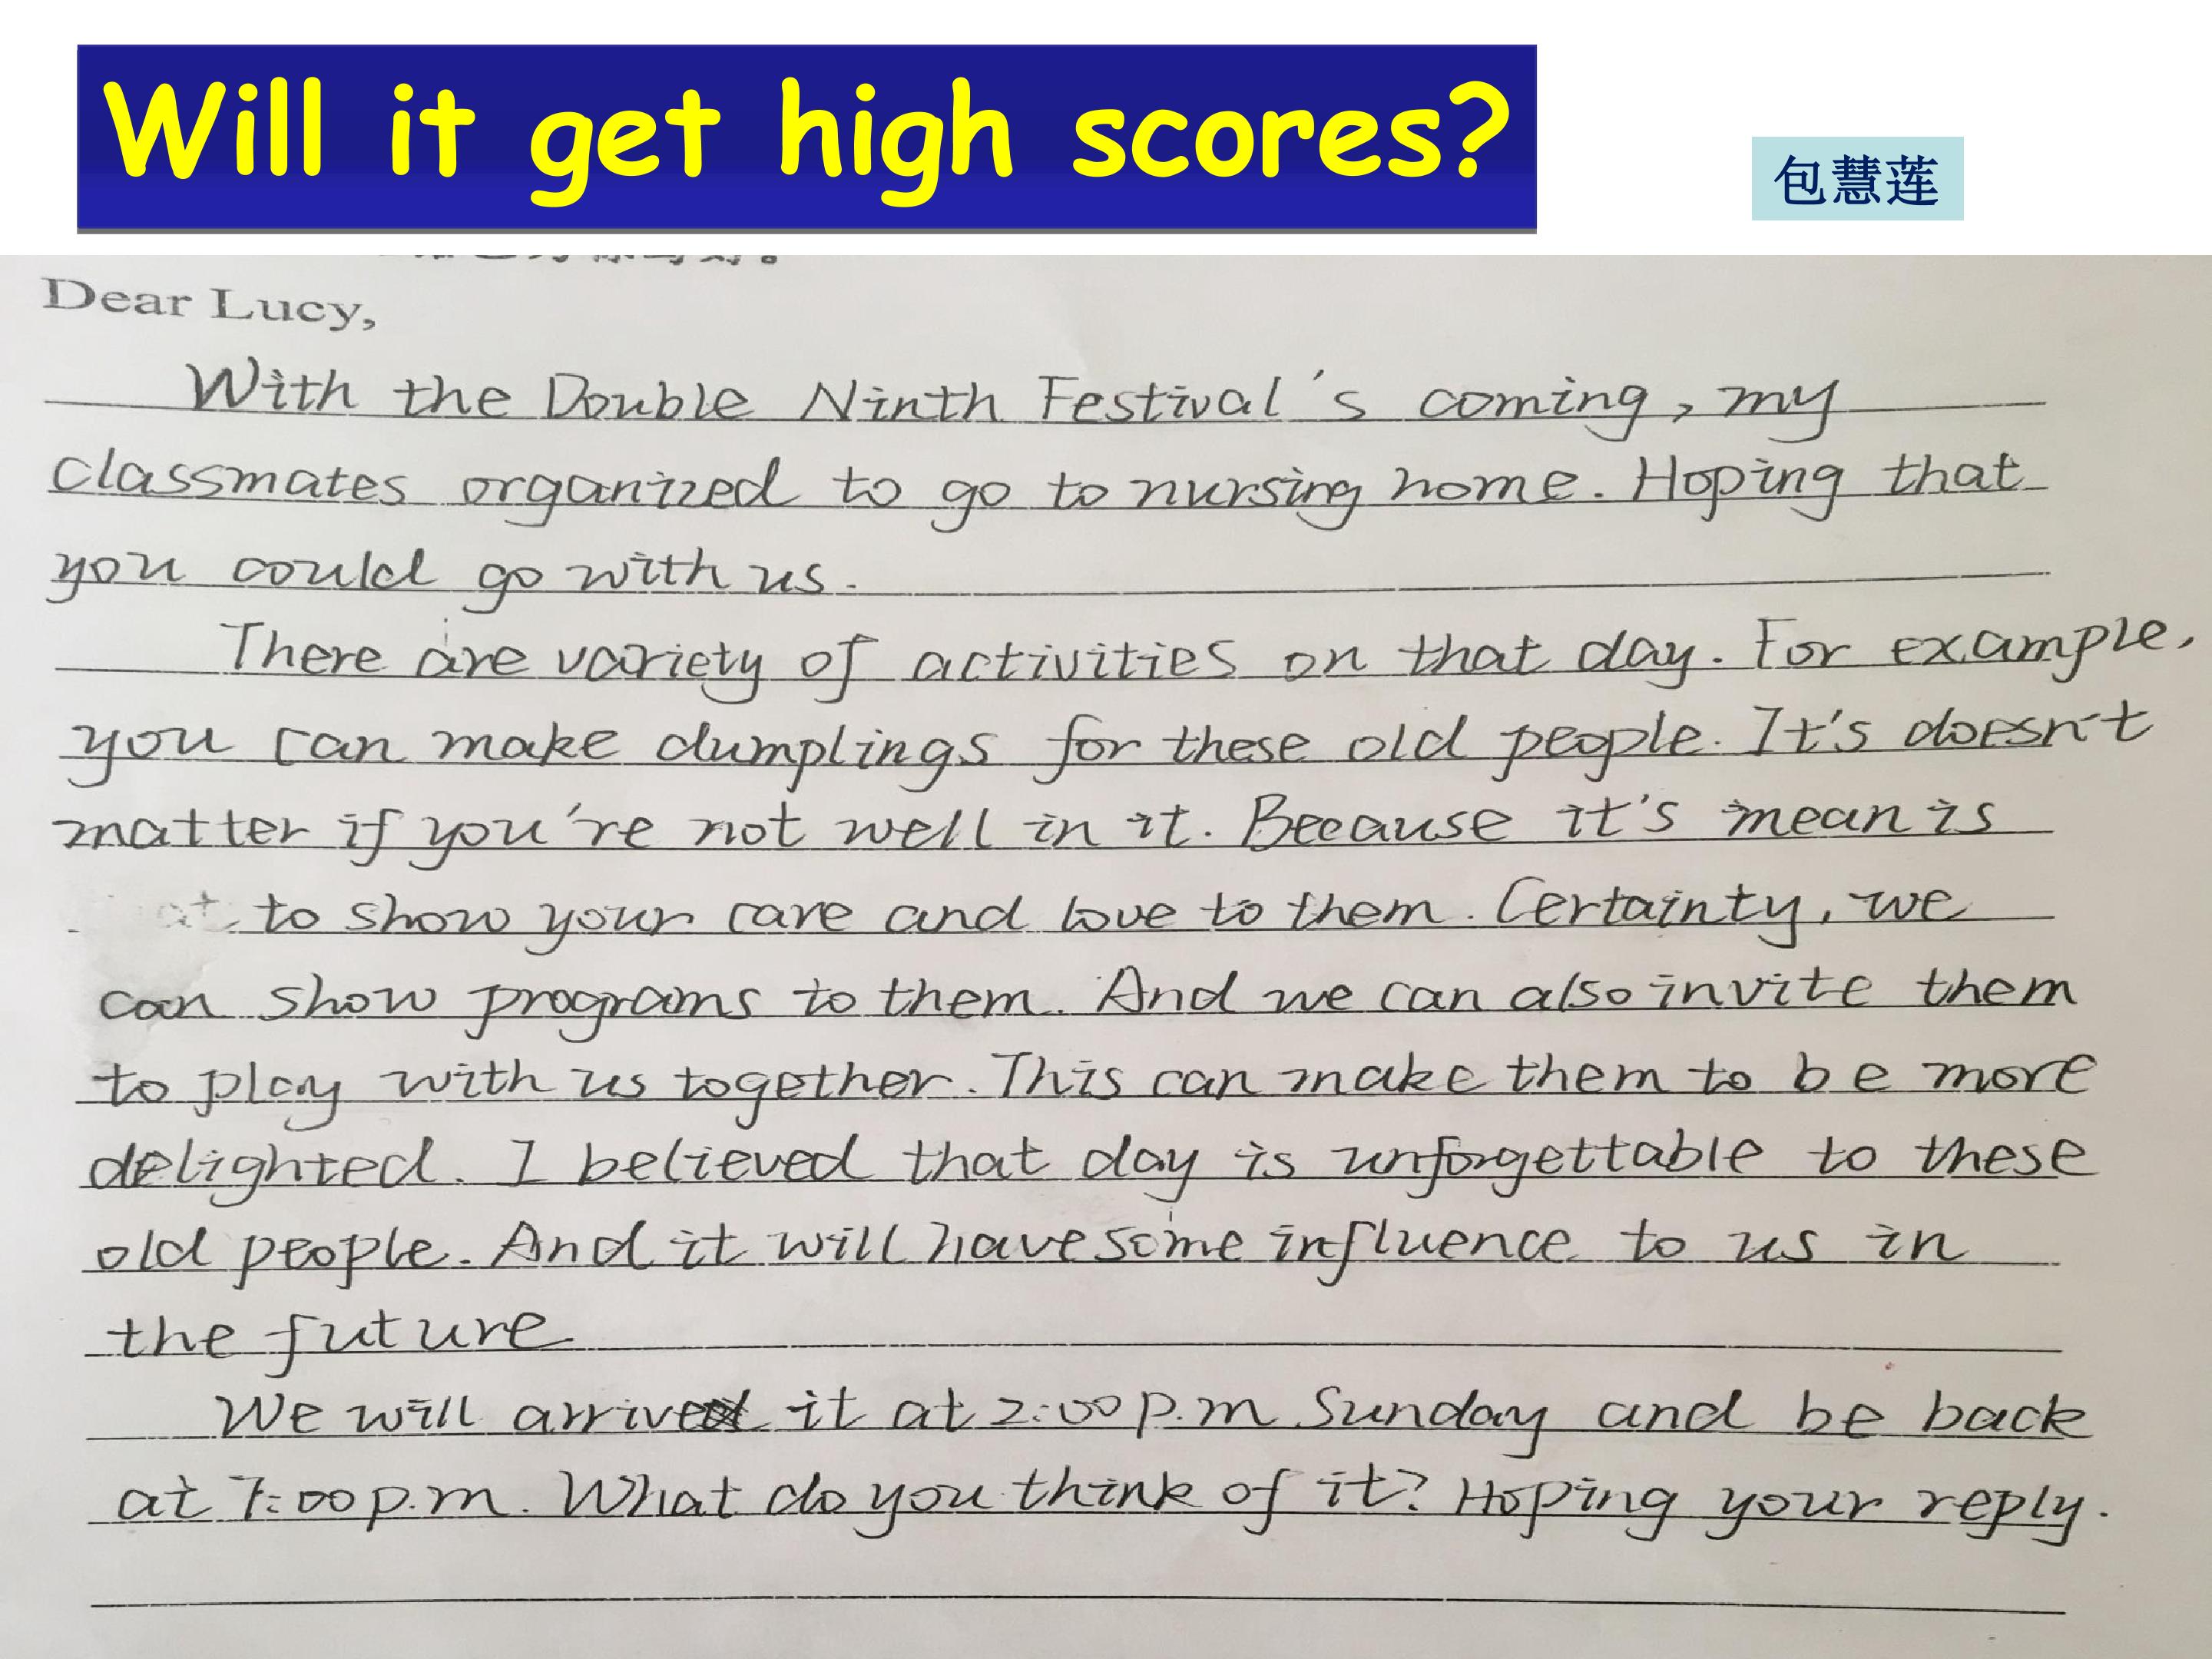 Will it get high scores?
包慧莲
Dear Lucy,
With the Double Ninth Festival's coming, my
classmates organized to go to nursing home. Hoping that
you could go with us.
There are variety of activities on that day. For example,
you can make dumplings for these old people. It's doesn't
matter if you're not well in it. Because it's mean is
to show your care and love to them. Certainty, we
can show programs to them. And we can also invite them
to play with us together. This can make them to be more
delighted. I believed that day is unforgettable to these
old people. And it will have some influence to us in
the future
We will arrive it at 2:00 p.m Sunday and be back
at 7:00 p.m. What do you think of it? Hoping your reply.